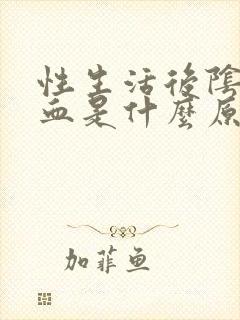 性生活後陰
血是什麼原
加菲鱼